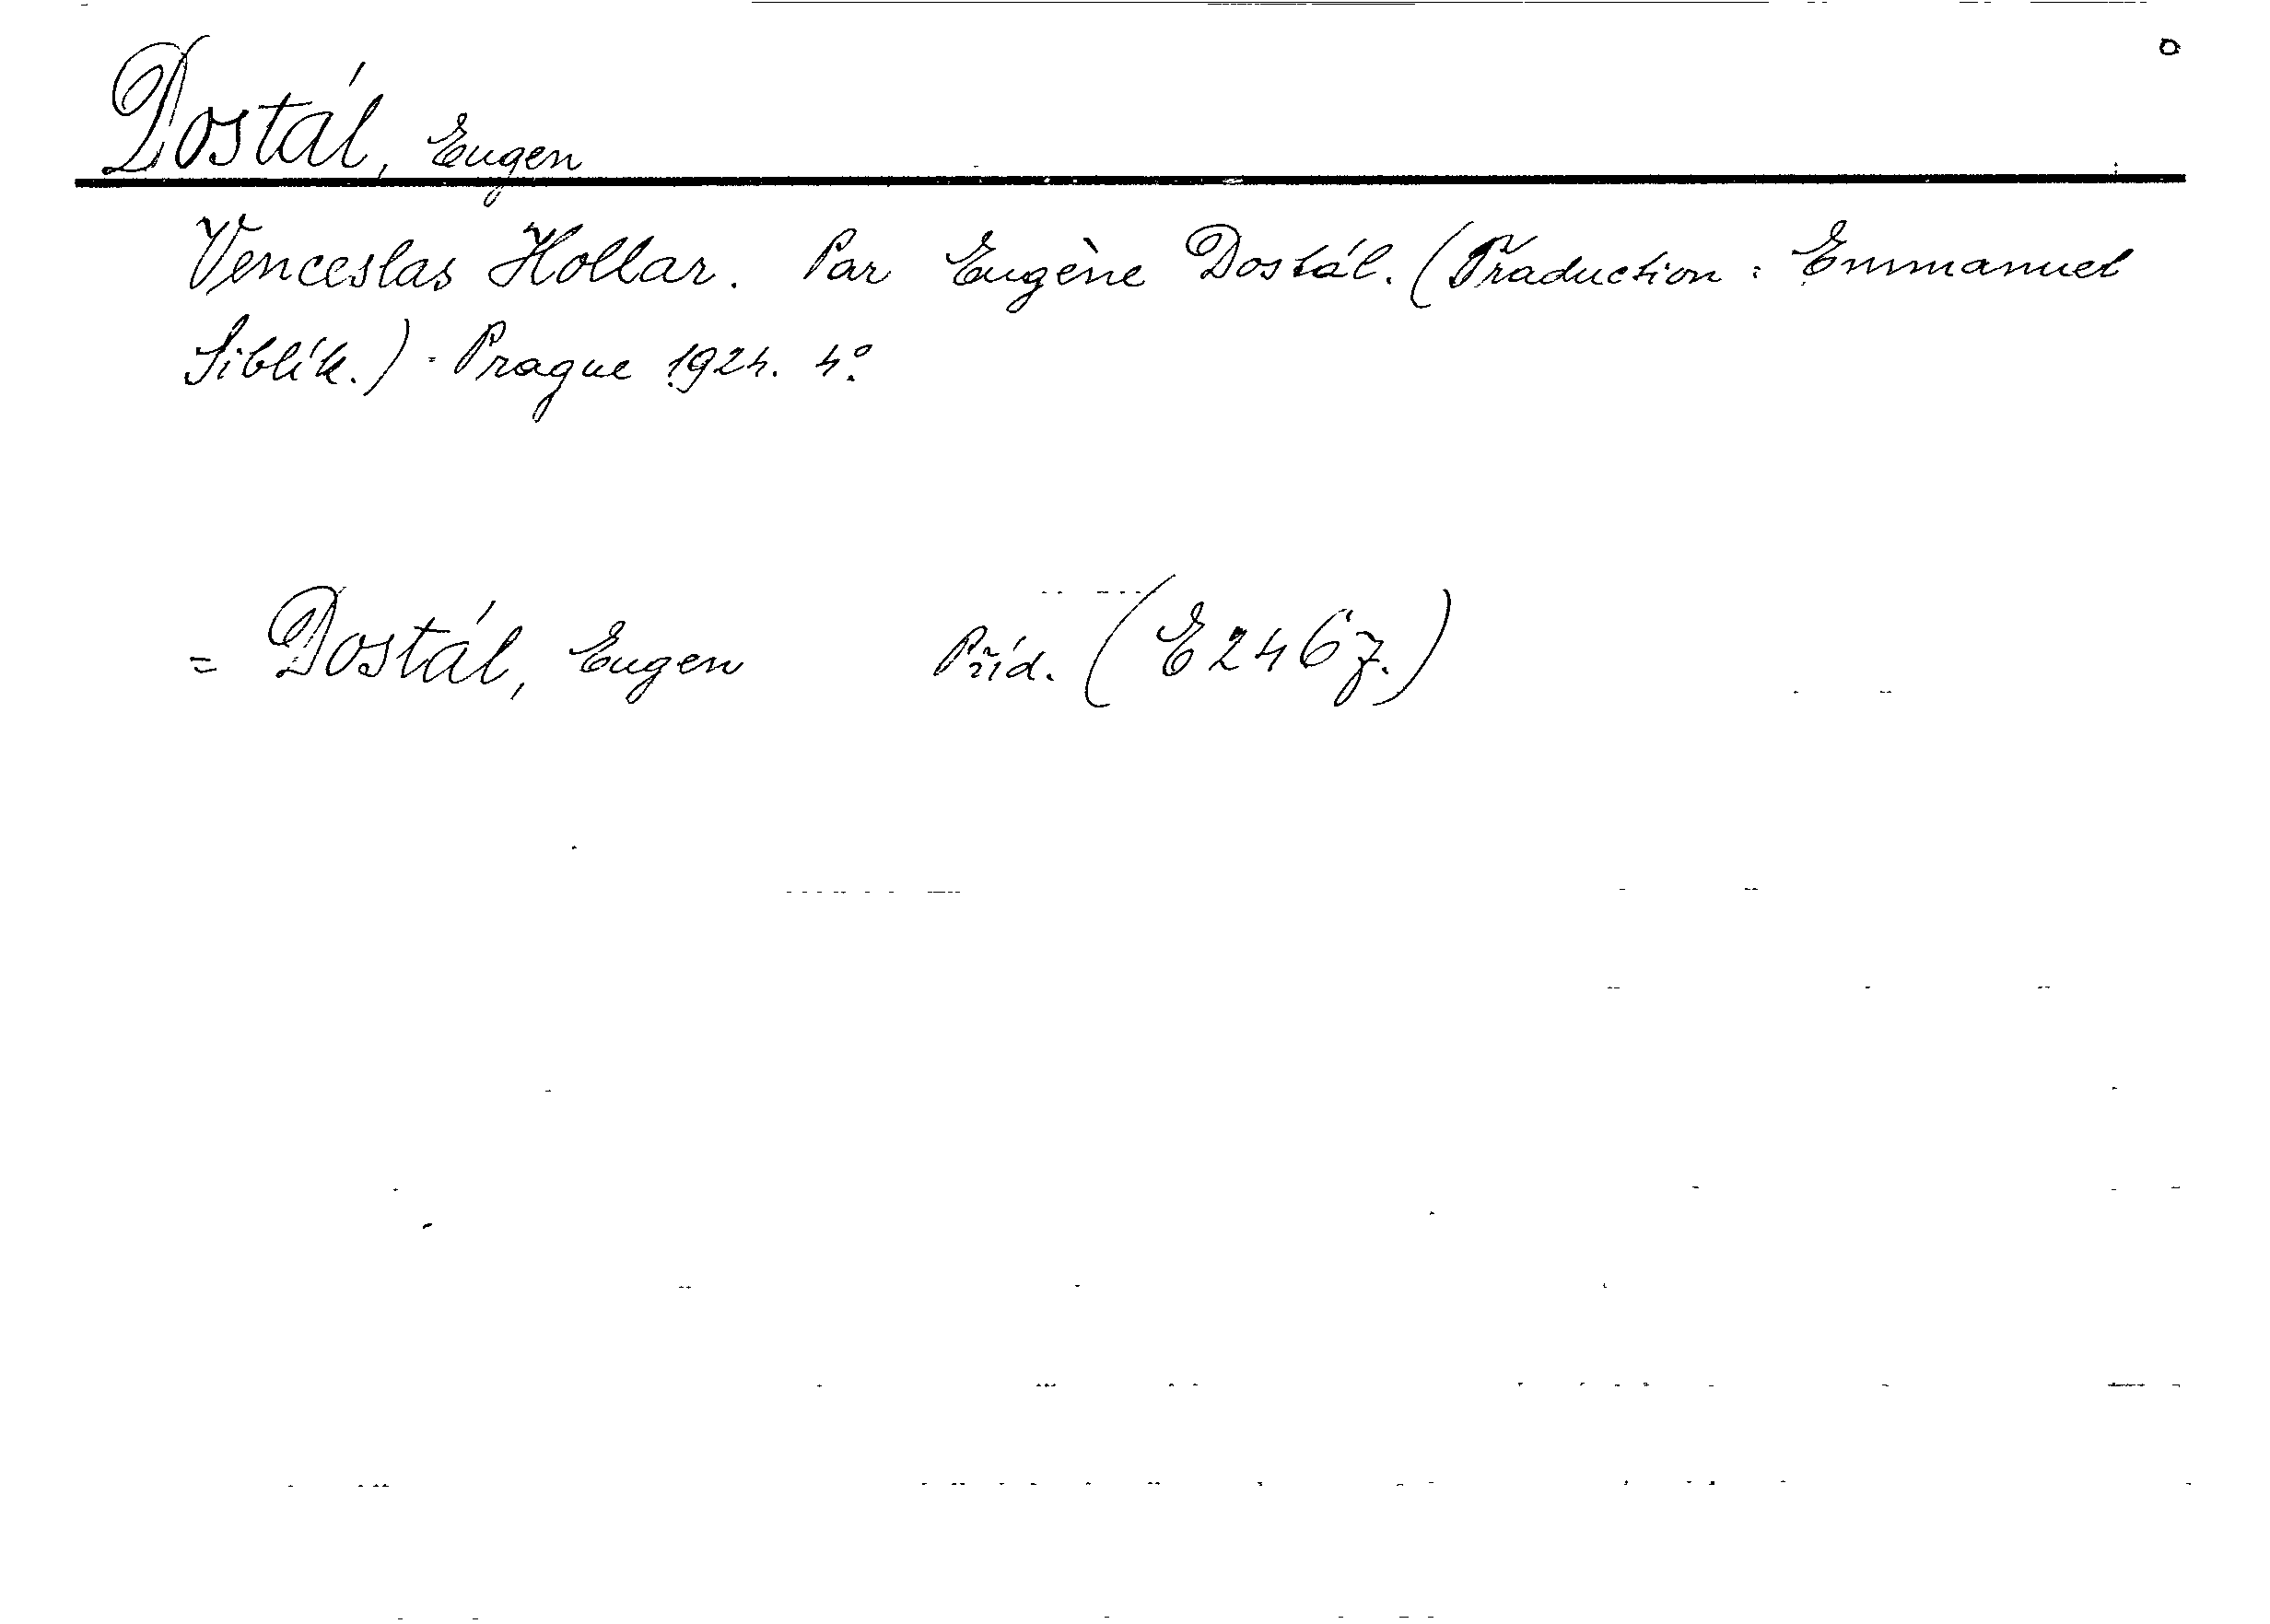 Dostál, Eugen
Venceslas Hollar. Par Eugène Dostál. (Traduction: Emmanuel
Siblík.) - Prague 1924. 4°.
= Dostál, Eugen Příd. (E 2467.)